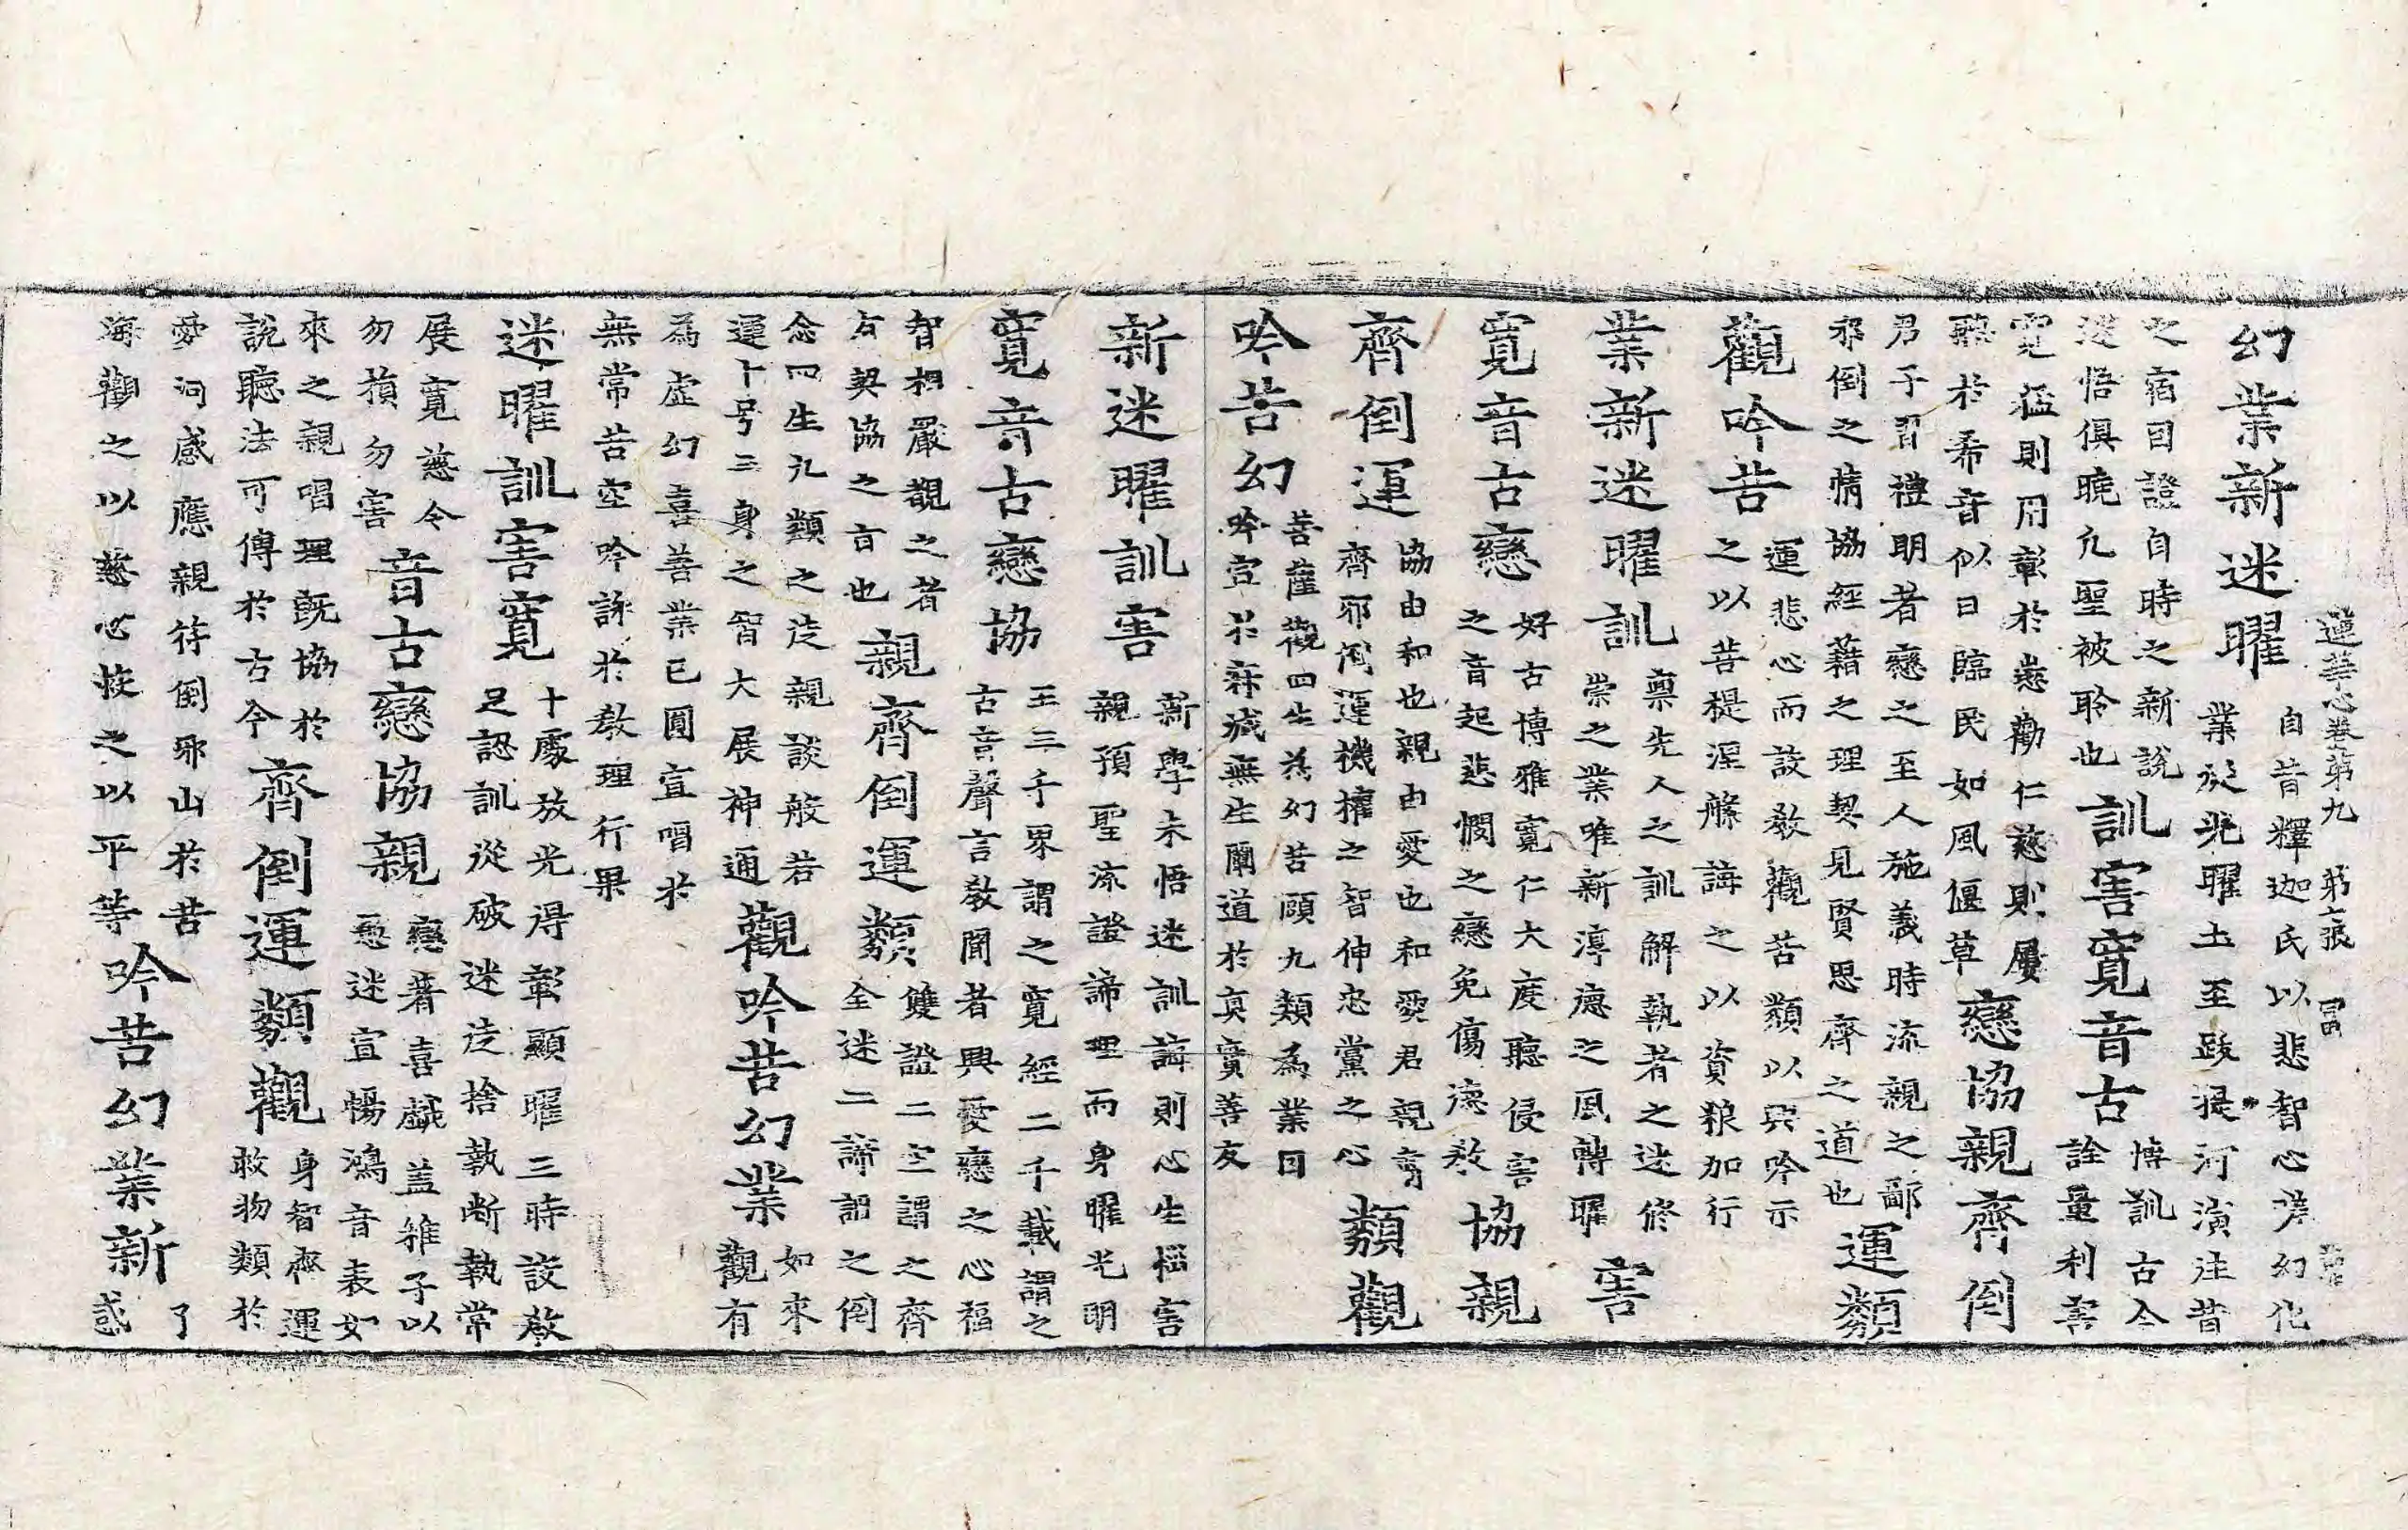 蓮華心卷第九 第二張 冨
幻業新迷曜
自昔釋迦氏以悲智心芽幻化
業放光曜土至跋提河演注昔
之宿因證自時之新說
迷悟俱曉凡聖被聆也
訓害寬音古
博訓古今
詮量利害
寬猛則用彰於慈勸仁慈則屢
聽於希音似日臨民如風偃草
戀協親齊倒
君子習禮明者戀之至人施義時流親之鄙
邪倒之情協經藉之理契見賢思齊之道也
運類
觀吟苦
運悲心而設教觀苦類以興吟示
之以菩提涅槃誨之以資粮加行
業新迷曜訓
稟先人之訓解執者之迷修
崇之業唯新淳德之風轉曜
害
寬音古戀
好古博雅寬仁大度聽侵害
之音起悲憫之戀免傷德教
協親
齊倒運
協由和也親由愛也和愛君親寡
齊邪倒運機權之智伸忠黨之心
類觀
吟苦幻
菩薩觀四生為幻苦願九類為業因
吟宣於寂滅無生闡道於真實善友
新迷曜訓害
新學未悟迷訓誨則心生惱害
親預聖流證諦理而身曜光明
寬音古戀協
王三千界謂之寬經二千載謂之
古音聲言教聞者興愛戀之心福
智相嚴覩之者
友契協之言也
親齊倒運類
雙證二空謂之齊
全迷二諦謂之倒
念四生九類之迷親談般若
運十号三身之智大展神通
觀吟苦幻業
如來
觀有
為虛幻喜善業已圓宣唱於
無常苦空吟詠於教理行果
迷曜訓害寬
十處放光得彰顯曜三時設教
足認訓從破迷迷捨執斷執常
展寬慈令
勿損勿害
音古戀協親
戀著喜戲盖稚子以
愚迷宣暢鴻音表如
來之親唱理既協於
說聽法可傳於古今
齊倒運類觀
身智齊運
救物類於
愛河感應親待倒邪山於苦
海觀之以慈心接之以平等
吟苦幻業新
了
惑